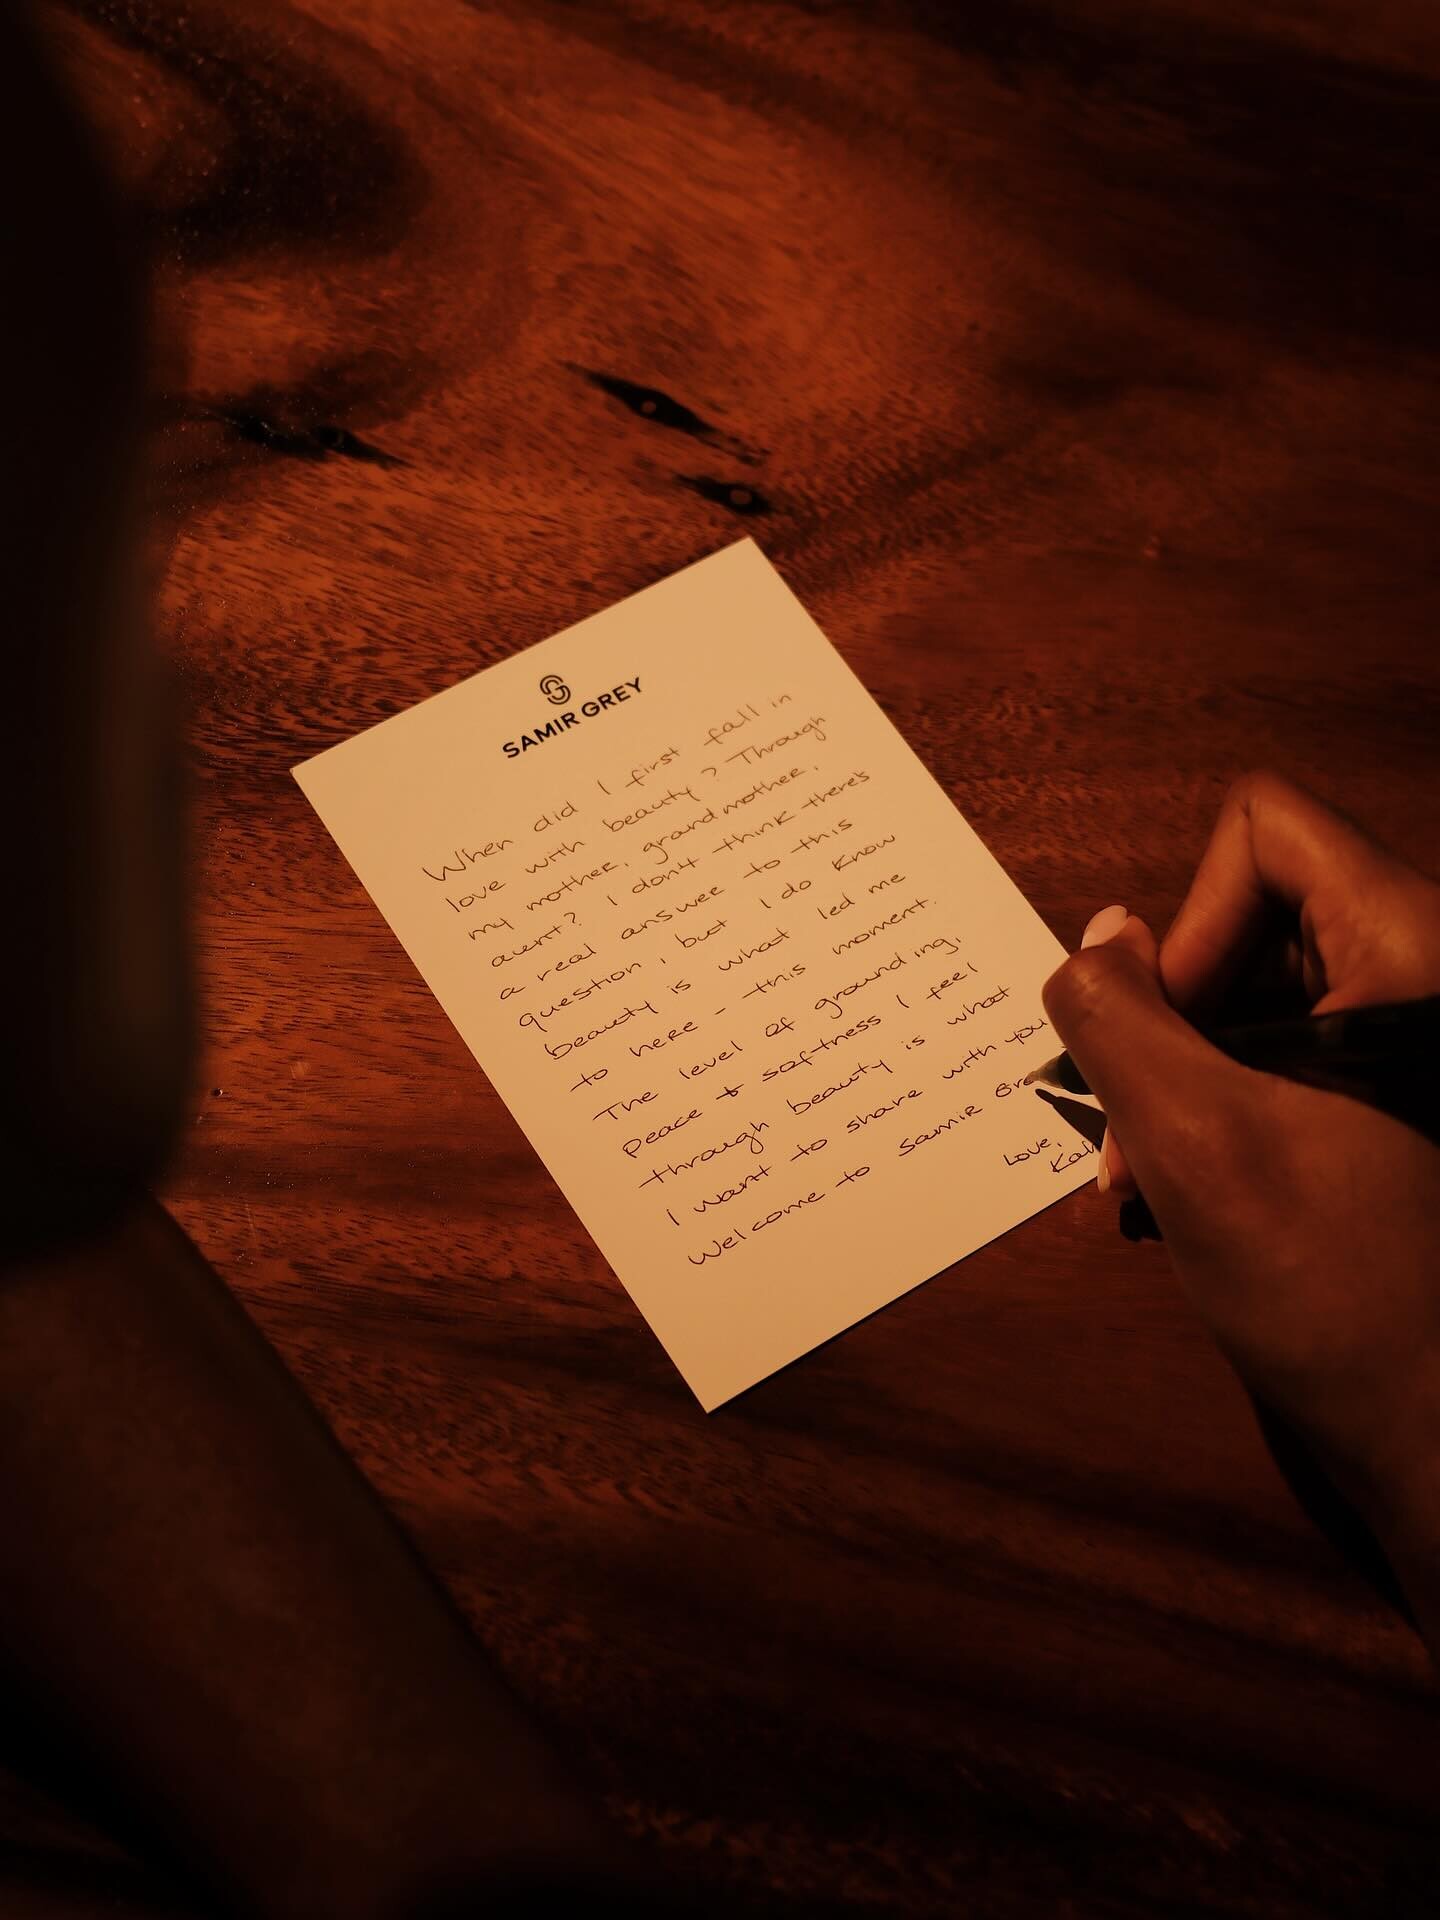 SAMIR GREY
When did I first fall in
love with beauty? Through
my mother, grandmother,
aunt? I don't think there's
a real answer to this
question, but I do know
beauty is what led me
to here - this moment.
The level of grounding,
peace & softness I feel
through beauty is what
I want to share with you
Welcome to Samir Gre
Love,